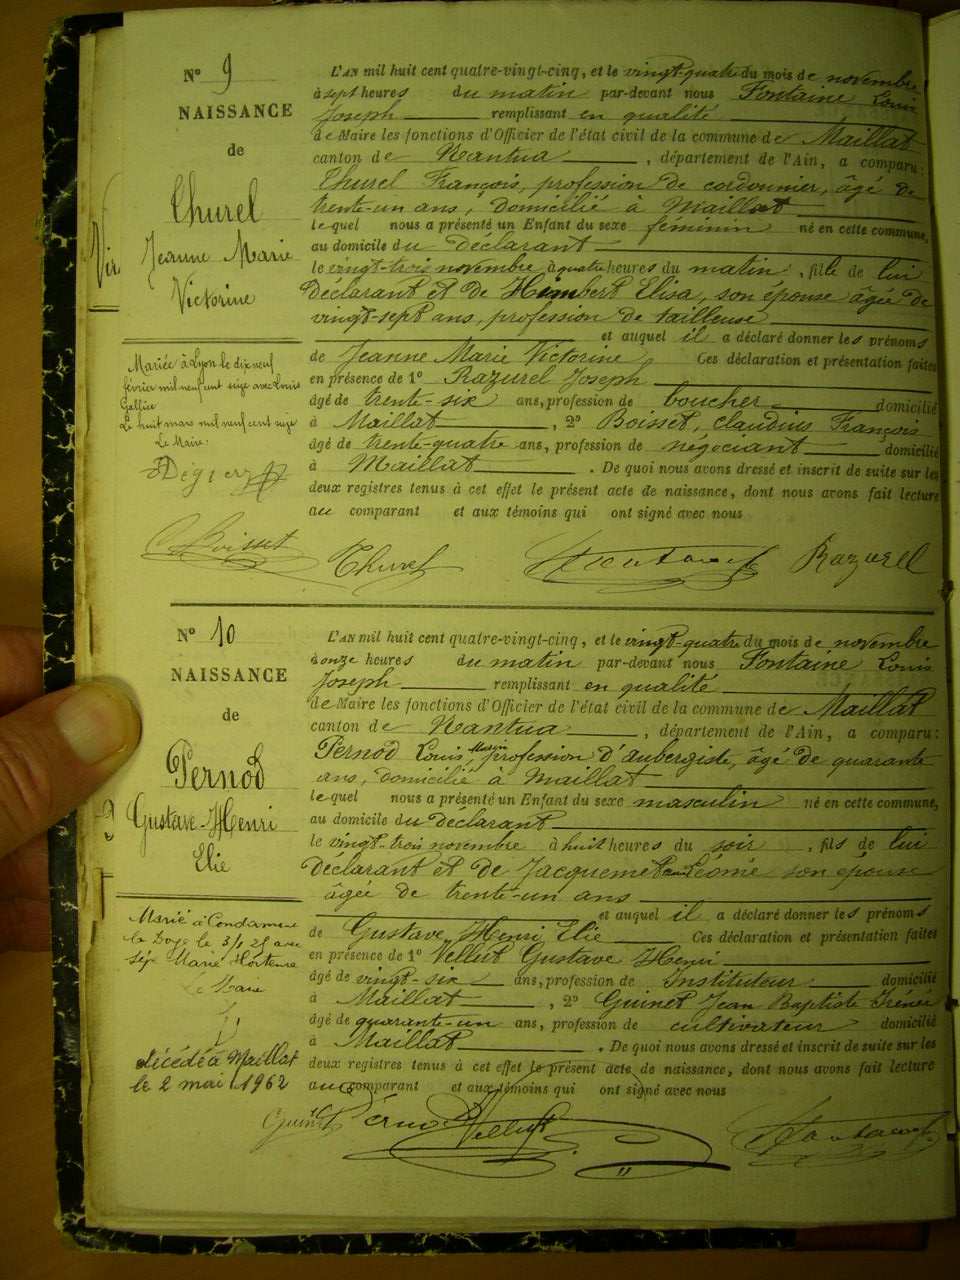 N° 9
NAISSANCE
de
Thurel
Jeanne Marie
Victorine
Mariée à Lyon le dix neuf
février mil neuf cent seize avec Louis
Le huit mars mil neuf cent seize
Le Maire:
L'AN mil huit cent quatre-vingt-cinq, et le vingt-quatre du mois de novembre
à sept heures du matin par-devant nous Fontaine Louis
Joseph remplissant en qualité
de Maire les fonctions d'Officier de l'état civil de la commune de Maillat
canton de Nantua, département de l'Ain, a comparu:
Thurel François, profession de cordonnier, âgé de
trente-un ans, domicilié à Maillat
lequel nous a présenté un Enfant du sexe féminin né en cette commune,
au domicile du déclarant
le vingt-trois novembre à quatre heures du matin, fille de lui
déclarant et de Humbert Elisa, son épouse âgée de
vingt-sept ans, profession de tailleuse
et auquel il a déclaré donner les prénoms
de Jeanne Marie Victorine Ces déclaration et présentation faites
en présence de 1° Razurel Joseph
âgé de trente-six ans, profession de boucher domicilié
à Maillat, 2° Boisset, claudius François
âgé de trente-quatre ans, profession de négociant domicilié
à Maillat. De quoi nous avons dressé et inscrit de suite sur les
deux registres tenus à cet effet le présent acte de naissance, dont nous avons fait lecture
au comparant et aux témoins qui ont signé avec nous
Boisset Thurel Razurel
N° 10
NAISSANCE
de
Pernod
Gustave-Henri
Elie
Marié à Condamine
la Doye le 3/1 25 avec
Marie Hortense
Le Maire
décédé à Maillat
le 2 mai 1962
L'AN mil huit cent quatre-vingt-cinq, et le vingt-quatre du mois de novembre
à onze heures du matin par-devant nous Fontaine Louis
Joseph remplissant en qualité
de Maire les fonctions d'Officier de l'état civil de la commune de Maillat
canton de Nantua, département de l'Ain, a comparu:
Pernod Louis, profession d'aubergiste, âgé de quarante
ans, domicilié à Maillat
lequel nous a présenté un Enfant du sexe masculin né en cette commune,
au domicile du déclarant
le vingt-trois novembre à huit heures du soir, fils de lui
déclarant et de Jacquemet Léonie son épouse
âgée de trente-un ans
et auquel il a déclaré donner les prénoms
de Gustave Henri Elie Ces déclaration et présentation faites
en présence de 1° Vellut Gustave Henri
âgé de vingt-six ans, profession de Instituteur domicilié
à Maillat, 2° Guinet Jean Baptiste Irénée
âgé de quarante-un ans, profession de cultivateur domicilié
à Maillat. De quoi nous avons dressé et inscrit de suite sur les
deux registres tenus à cet effet le présent acte de naissance, dont nous avons fait lecture
au comparant et aux témoins qui ont signé avec nous
Guinet Pernod Vellut